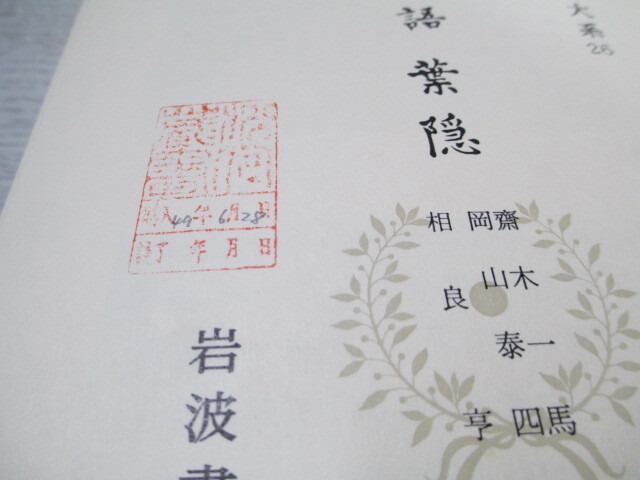 大系
26
語 葉隠
齋木一馬
岡山泰四
相良亨
入 49年 6月 28日
了 年 月 日
岩波書